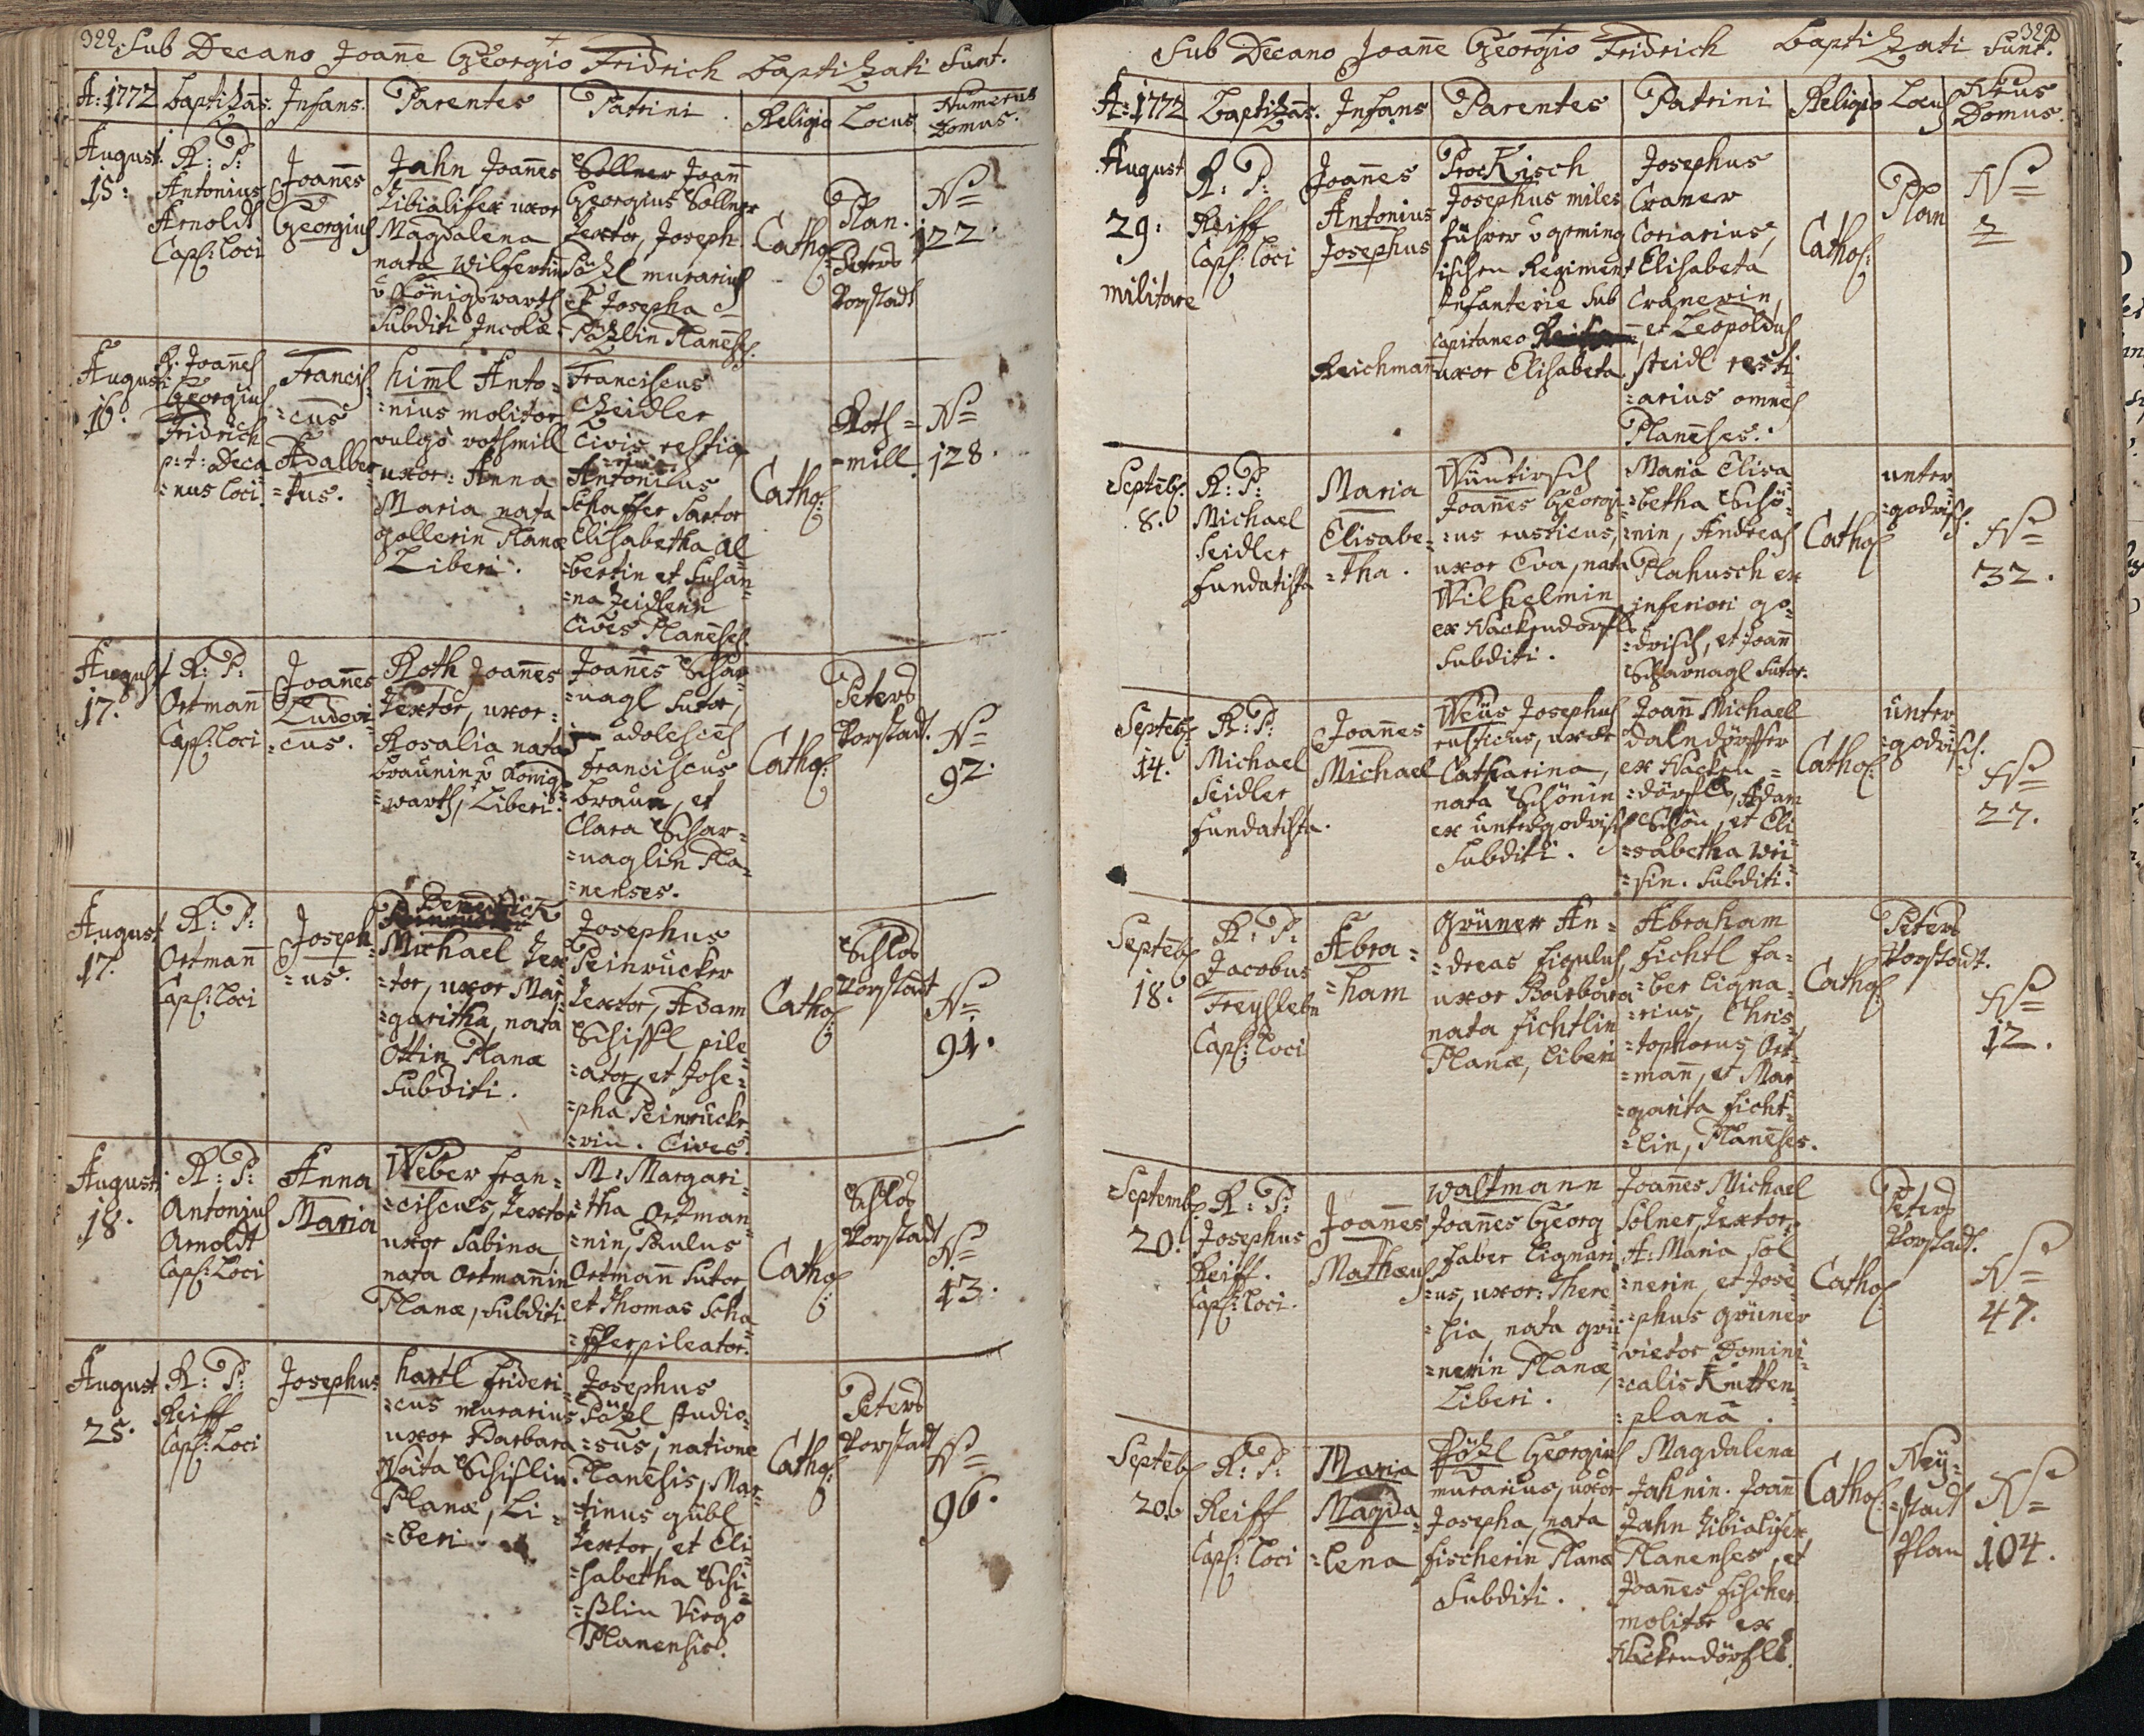 322
Sub Decano Joañe Georgio Fridrich baptizati Sunt.
A: 1772 baptizãs. Infans. Parentes Patrini. Religio Locus Numerus
Domus.
August.
15:
R: P:
Antonius
Arnoldt
Capl: Loci
Joañes
Georgius
Jahn Joañes
Tibialifex uxor
Magdalena
nata Wilfertin
v Königswarth
Subditi Incolæ.
Sollner Joañ
Georgius Sollner
Textor, Joseph
Pözl murarius
et Josepha
Pözlin Planẽses.
Cathol:
Plan.
Peters
Vorstadt
N=
122.
August
16.
R. Joañes
Georgius
Fridrich
p: t: Deca
=nus loci.
Francis=
=cus
Adalber
=tus.
himl Anto=
=nius molitor
vulgò rothmill
uxor: Anna
Maria nata
gollerin Planæ
Liberi.
Franciscus
Zeidler
Civis restia
=rius
Antonius
Schaffer Sartor
Elisabetha Al
=bertin et Susan=
=na Zeidlerin
Cives Planẽses.
Cathol:
Roth=
=mill
N=
128.
August
17.
R: P:
Ortmañ
Capl: Loci
Joañes
Ludovi
=cus.
Roth Joañes
Textor, uxor:
Rosalia nata
Braunin v König
=warth, Liberi.
Joañes Schar=
=nagl Sutor,
adolescẽs
Franciscus
Braun, et
Clara Schar=
=naglin Pla=
=nenses.
Cathol:
Peters
Vorstadt.
N=
92.
August
17.
R: P:
Ortmañ
Capl: Loci
Joseph=
=us.
Benedick
Michael Tex
=tor, uxor Mar=
=garitha, nata
Ottin Planæ
Subditi.
Josephus
Peinrücker
Textor, Adam
Schissl pile=
=ator, et Jose=
=pha Peinrücke
=rin. Cives.
Cathol:
Schlos
Vorstadt
N=
91.
August.
18.
R: P:
Antonius
Arnoldt
Capl: Loci
Anna
Maria
Weber fran=
=ciscus, Textor
uxor Sabina
nata Ortmañin
Planæ, Subditi
M: Margari=
=tha Ortman=
=nin, Paulus
Ortmañ Sutor
et Thomas Scha
=ffer pileator.
Cathol:
Schlos
Vorstadt
N=
13.
August
25.
R: P:
Reiff
Capl: Loci
Josephus
hartl frideri=
=cus murarius
uxor Barbara
Nata Schislin
Planæ, Li=
=beri.
Josephus
Pözl studio=
=sus, natione
Planẽsis, Mar=
=tinus gübl
Textor, et Eli=
=sabetha Schi=
=sslin Virgo
Planensis.
Cathol:
Peters
Vorstadt
N=
96.
323
Sub Decano Joañe Georgio Fridrich baptizati Sunt.
A: 1772 baptizãs. Infans Parentes Patrini Religio Locus Nrus
Domus.
August
29:
militare
R: P:
Reiff
Capl: Loci
Joañes
Antonius
Josephus
Prockisch
Josephus miles
führer v
ischen Regiment
Infanterie Sub
Capitaneo
Reichmañ
uxor Elisabeta
Josephus
Cramer
Coriarius,
Elisabeta
Cramerin,
et Leopoldus
steidl resti=
=arius omnes
Planẽses.
Cathol:
Plan
N=
2
Septeb.
8.
R: P:
Michael
Seidler
fundatista
Maria
Elisabe=
=tha.
Wüntirsch
Joañes Georgi=
=us rusticus,
uxor Eva, nata
Wilhelmin
ex Hackendorfl
Subditi.
Maria Elisa=
=betha Schö=
=nin, Andreas
Plahusch ex
inferiori go=
=drisch, et Joañ
Scharnagl Sutor.
Cathol
unter
=godrisch.
N=
32.
Septeb.
14.
R: P:
Michael
Seidler
fundatista.
Joañes
Michael
Weis Josephus
rusticus, uxor
Catharina,
nata Schönin
ex untergodrisch
Subditi.
Joañ Michael
dalndörffer
ex Hacken=
=dörfl, Adam
Schön, et Eli=
=sabetha Wei
=sin. Subditi.
Cathol:
unter
=godrisch.
N=
27.
Septeb
18.
R: P:
Jacobus
Freyslebn
Capl: Loci
Abra=
=ham
grüner An=
=dreas figulus
uxor Barbara
nata fichtlin
Planæ, liberi
Abraham
fichtl fa=
=ber ligna=
=rius, Chris
=tophorus Ort=
=mañ, et Mar
=garita ficht=
=lin, Planẽses.
Cathol
Peters
Vorstadt.
N=
12.
Septemb.
20.
R: P:
Josephus
Reiff.
Capl: Loci.
Joañes
Mathæus
Waltmann
Joañes Georg
faber lignari
=us, uxor: There=
=sia, nata grü
=nerin Planæ,
Liberi.
Joañes Michael
Solner, Textor,
A: Maria Sol
=nerin, et Jose
=phus grüner
vietor Domini=
=calis Kutten=
=planã.
Cathol
Peters
Vorstadt.
N=
47.
Septeb
20.
R: P:
Reiff
Capl: Loci
Maria
Magda=
=lena
Pözl Georgius
murarius, uxor
Josepha, nata
fischerin Planæ
Subditi.
Magdalena
Jahnin. Joañ
Jahn Tibialifex
Planenses, et
Joañes fischer
molitor ex
Hackendörfl.
Cathol:
Ney=
=stadt
Plan
N=
104.